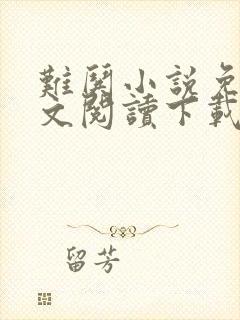 難闋小説免
文閱讀下載
留芳